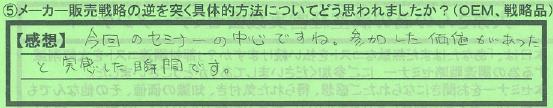 ⑤メーカー販売戦略の逆を突く具体的方法についてどう思われましたか？(OEM、戦略品)
【感想】 今回のセミナーの中心ですね。参加した価値があった
と実感した瞬間です。